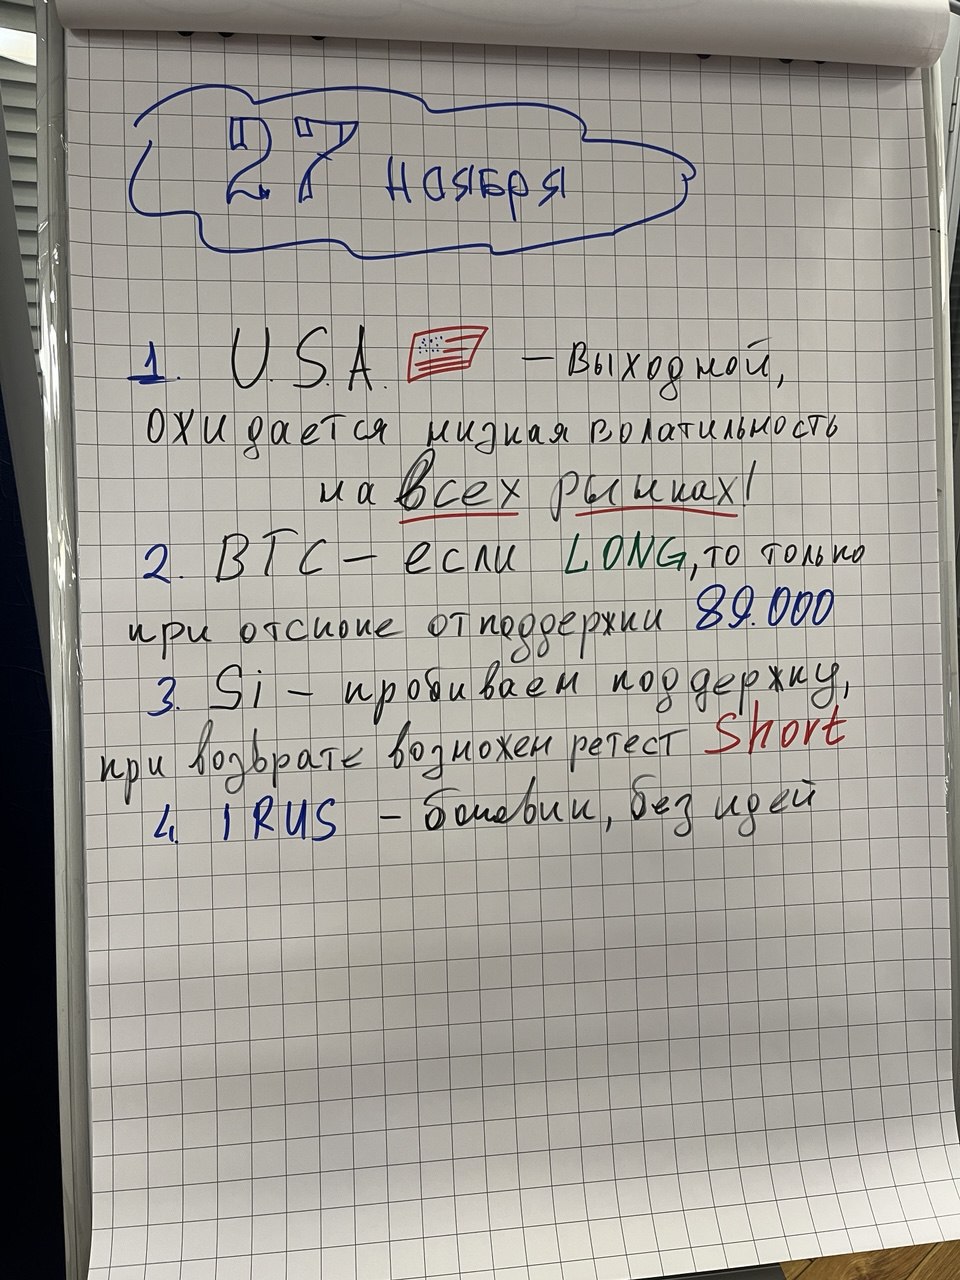 27 ноября
1. U.S.A. – Выходной,
ожидается низкая волатильность
на всех рынках!
2. BTC – если LONG, то только
при отскоке от поддержки 89.000
3. Si – пробиваем поддержку,
при возврате возможен ретест Short
4. IRUS – боковик, без идей